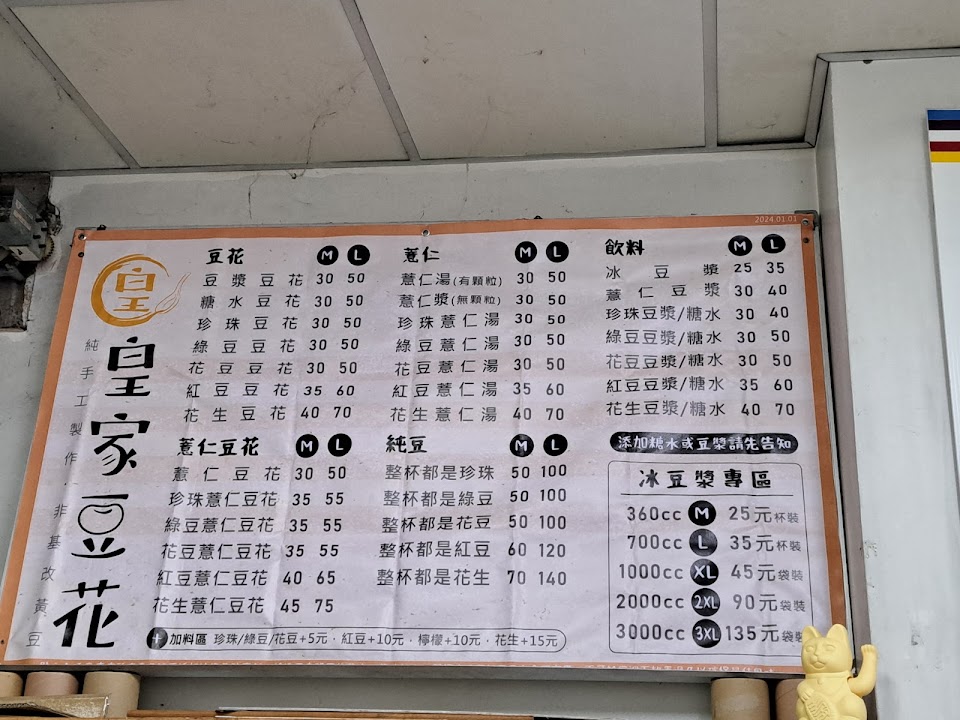 2024.01.01
皇
皇家豆花
純手工製作.非基改黃豆
豆花 M L
豆漿豆花 30 50
糖水豆花 30 50
珍珠豆花 30 50
綠豆豆花 30 50
花豆豆花 30 50
紅豆豆花 35 60
花生豆花 40 70
薏仁豆花 M L
薏仁豆花 30 50
珍珠薏仁豆花 35 55
綠豆薏仁豆花 35 55
花豆薏仁豆花 35 55
紅豆薏仁豆花 40 65
花生薏仁豆花 45 75
薏仁 M L
薏仁湯(有顆粒) 30 50
薏仁漿(無顆粒) 30 50
珍珠薏仁湯 30 50
綠豆薏仁湯 30 50
花豆薏仁湯 30 50
紅豆薏仁湯 35 60
花生薏仁湯 40 70
純豆 M L
整杯都是珍珠 50 100
整杯都是綠豆 50 100
整杯都是花豆 50 100
整杯都是紅豆 60 120
整杯都是花生 70 140
+加料區 珍珠/綠豆/花豆+5元.紅豆+10元.檸檬+10元.花生+15元
飲料 M L
冰豆漿 25 35
薏仁豆漿 30 40
珍珠豆漿/糖水 30 40
綠豆豆漿/糖水 30 50
花豆豆漿/糖水 30 50
紅豆豆漿/糖水 35 60
花生豆漿/糖水 40 70
添加糖水或豆漿請先告知
冰豆漿專區
360cc M 25元杯裝
700cc L 35元杯裝
1000cc XL 45元袋裝
2000cc 2XL 90元袋裝
3000cc 3XL 135元袋裝